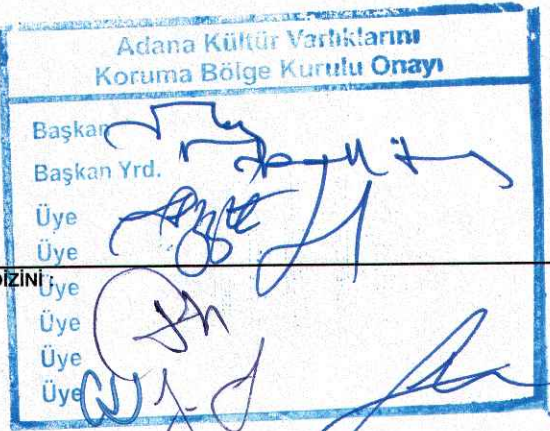 Adana Kültür Varlıklarını
Koruma Bölge Kurulu Onayı
Başkan
Başkan Yrd.
Üye
Üye
DİZİNİ :
Üye
Üye
Üye
Üye